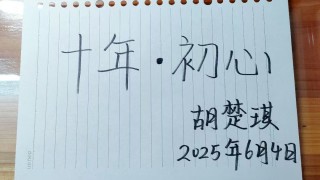 十年·初心
胡楚琪
2025年6月4日